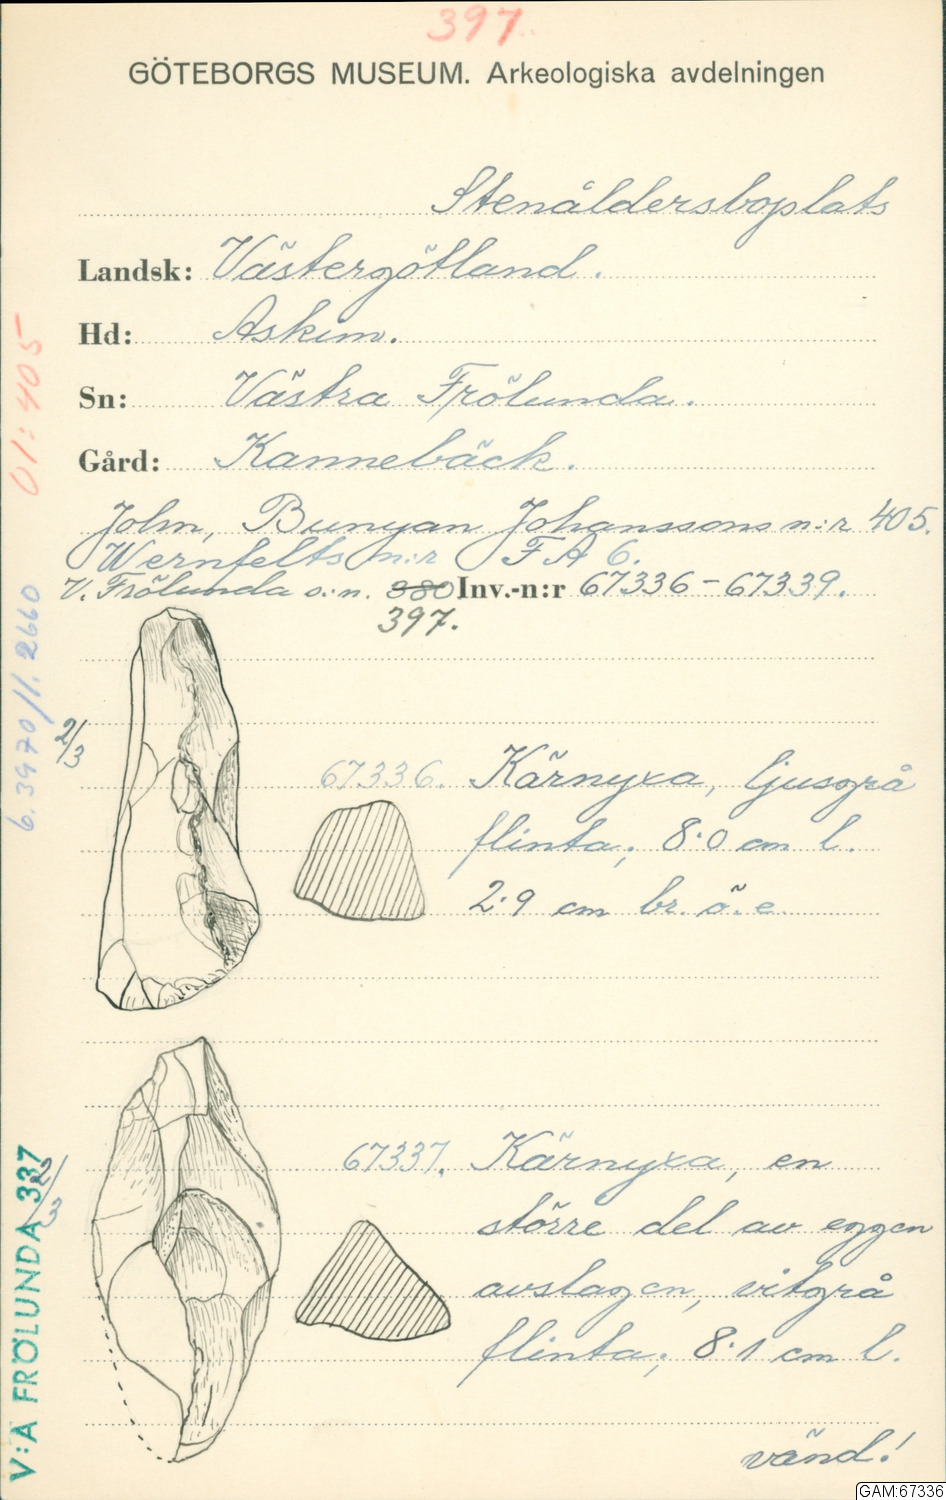 397.
GÖTEBORGS MUSEUM. Arkeologiska avdelningen
Stenåldersboplats
Landsk: Västergötland.
Hd: Askim.
Sn: Västra Frölunda.
Gård: Kannebäck.
John, Bunyan Johanssons n:r 405.
Wernfelts n:r F A 6.
V. Frölunda s:n. 380 Inv.-n:r 67336-67339.
397.
01:405
6.3970/1.2660
2/3
67336. Kärnyxa, ljusgrå
flinta; 8.0 cm l.
2.9 cm br. ö. e.
67337. Kärnyxa, en
större del av eggen
avslagen, vitgrå
flinta; 8.1 cm l.
2/3
V:A FRÖLUNDA 337
vänd!
GAM:67336